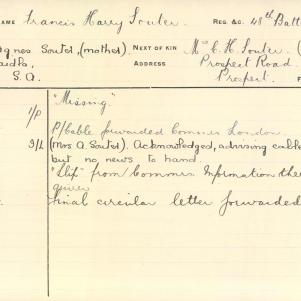 AME Francis Harry Souter REG &C. 48th Batt
Agnes Souter, (mother) NEXT OF KIN Mrs C. H. Souter
ADDRESS Prospect Road.
S.A. Prospect.
"Missing."
1/P P/Cable forwarded Commrs London.
3/L (Mrs A. Souter). Acknowledged, advising cable
but no news to hand.
"Slip" from Commrs Information there
given
Final circular letter forwarded